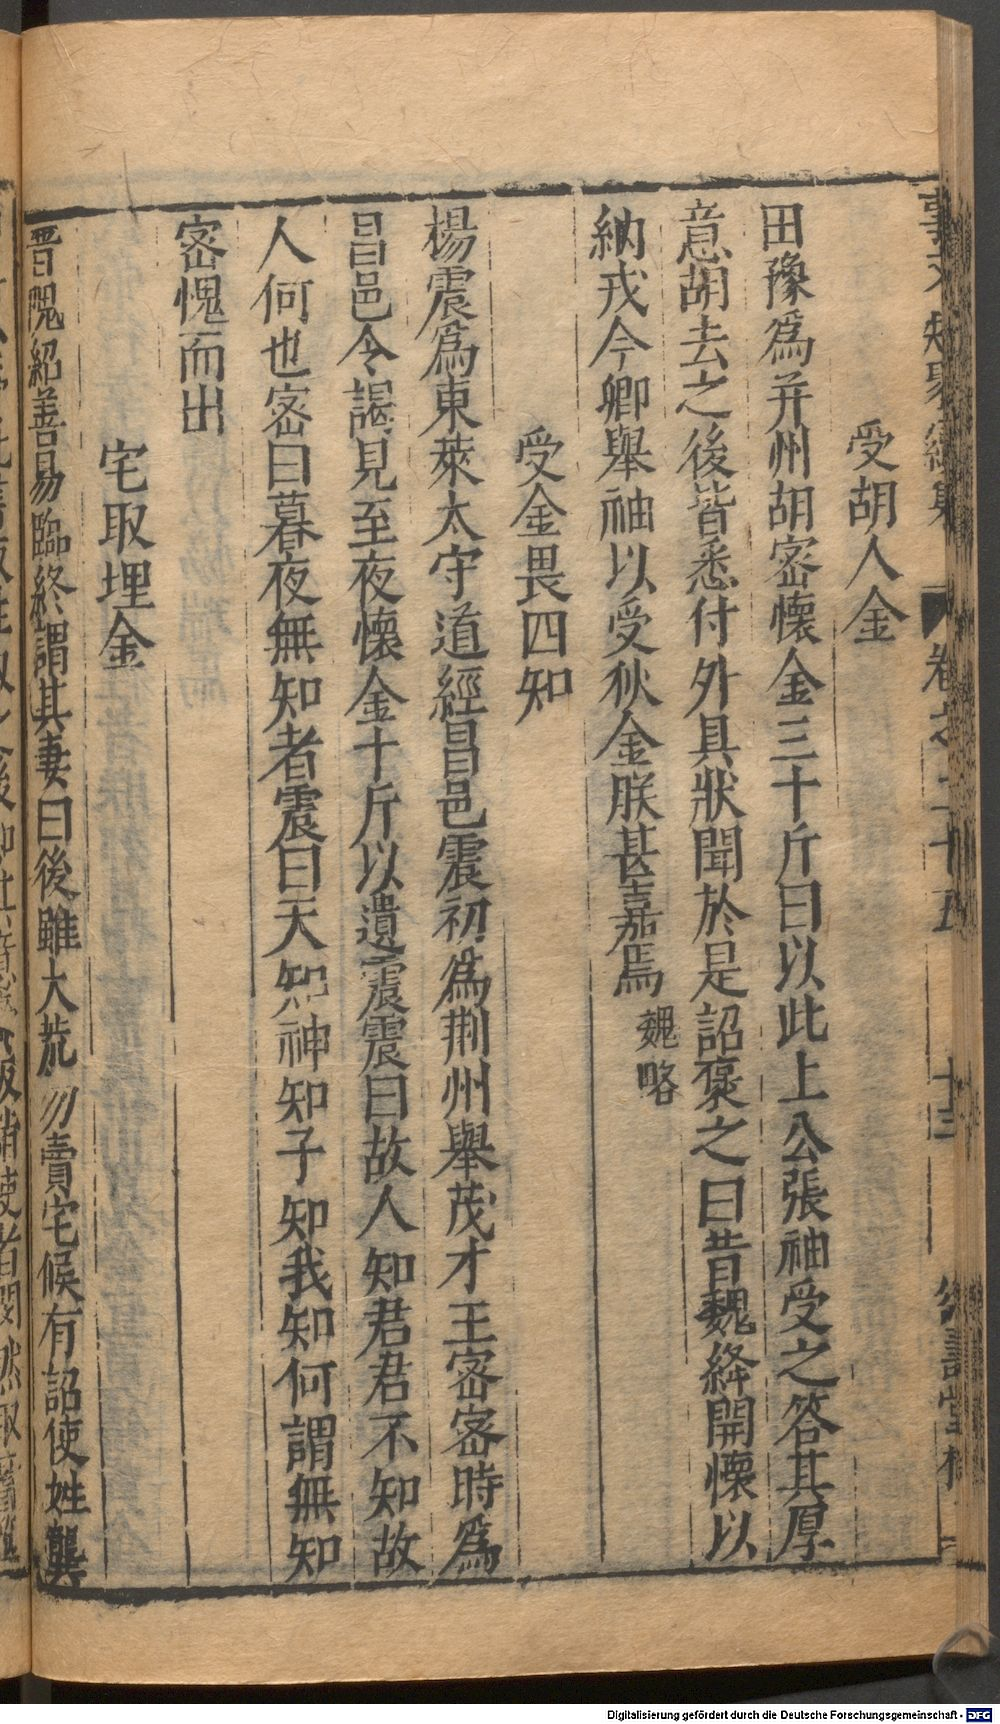 受胡人金
田豫爲并州胡密懷金三十斤曰以此上公張袖受之答其厚
意胡去之後皆悉付外具狀聞於是詔褒之曰昔魏絳開懷以
納戎今卿舉袖以受狄金朕甚嘉焉 魏略
受金畏四知
楊震爲東萊太守道經昌邑震初爲荆州舉茂才王密密時爲
昌邑令謁見至夜懷金十斤以遺震震曰故人知君君不知故
人何也密曰暮夜無知者震曰天知神知子知我知何謂無知
密愧而出
宅取埋金
晋隗紹善易臨終謂其妻曰後雖大荒勿賣宅候有詔使姓龔
卷之二十五 十三
Digitalisierung gefördert durch die Deutsche Forschungsgemeinschaft - DFG